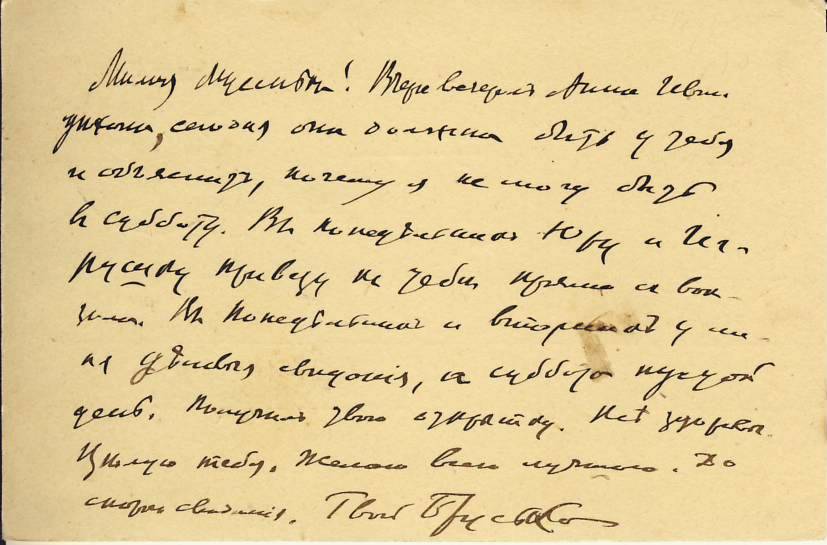 Милая Мусинька! Вчера вечером Анна Ивани
уехала, сегодня она должна быть у тебя
и объяснить, почему я не могу быть
в субботу. Въ понедѣльникъ Юру и Иг-
привезу къ тебѣ прямо съ вок-
зала. Въ понедѣльникъ и вторникъ у ме-
ня дѣловыя свиданія, а суббота пустой
день. Получилъ твою открытку. здоровы.
Цѣлую тебя. Желаю всего лучшаго. До
скораго свиданія. Твой